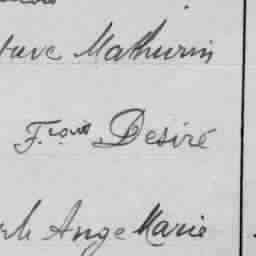 Mathurin
F.çois Desiré
Ange Marie